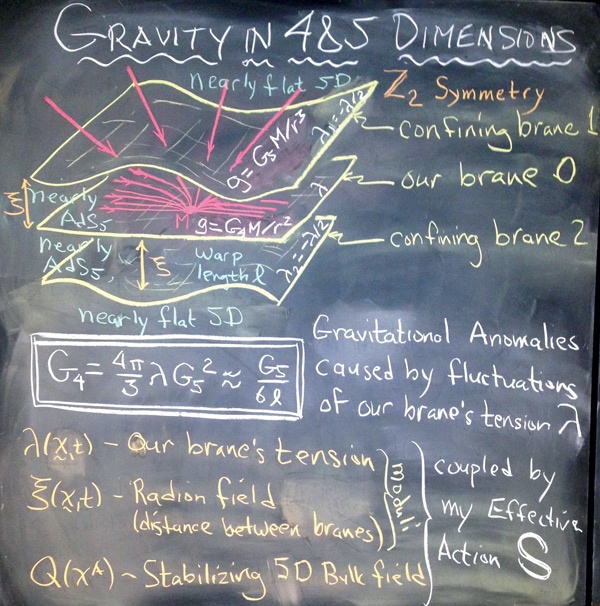 GRAVITY IN 4&5 DIMENSIONS
nearly flat 5D
Z₂ Symmetry
λ₁=-λ/2
confining brane 1
g=G₅M/r³
λ
our brane 0
ξ
nearly
AdS₅
M
g=G₄M/r²
λ₂=-λ/2
confining brane 2
nearly
AdS₅
ξ
warp
length ℓ
nearly flat 5D
G₄ = 4π/3 λ G₅² ≈ G₅/6ℓ
Gravitational Anomalies
caused by fluctuations
of our brane's tension λ
λ(x,t) – Our brane's tension
ξ(x,t) – Radion field
(distance between branes)
moduli
Q(xᴬ) – Stabilizing 5D Bulk field
coupled by
my Effective
Action S